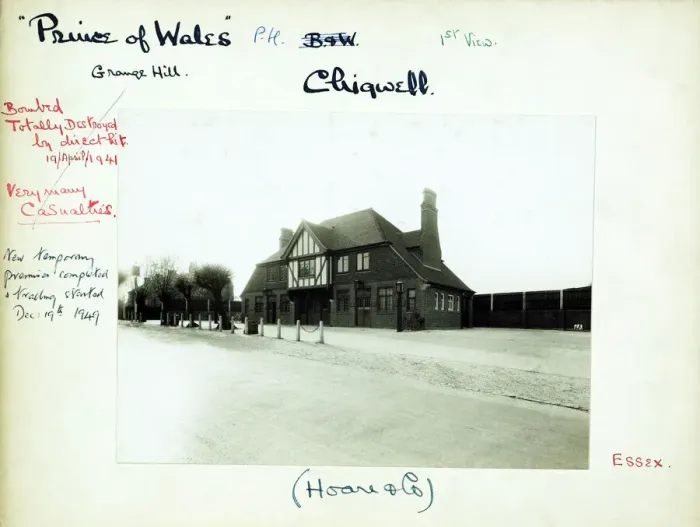 "Prince of Wales" P.H. B&W. 1st View.
Grange Hill.
Chigwell.
Bombed
Totally Destroyed
by direct hit.
19/April/1941
Very many
Casualties.
New temporary
premises completed
& trading started
Dec: 19th 1949
Essex.
(Hoare & Co)